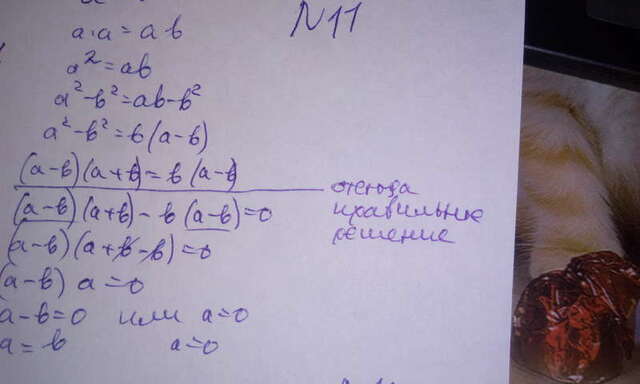 N11
a·a = ab
a² = ab
a² - b² = ab - b²
a² - b² = b(a-b)
(a-b)(a+b) = b(a-b)
отсюда правильное решение
(a-b)(a+b) - b(a-b) = 0
(a-b)(a+b-b) = 0
(a-b) a = 0
a-b=0 или a=0
a = b a=0